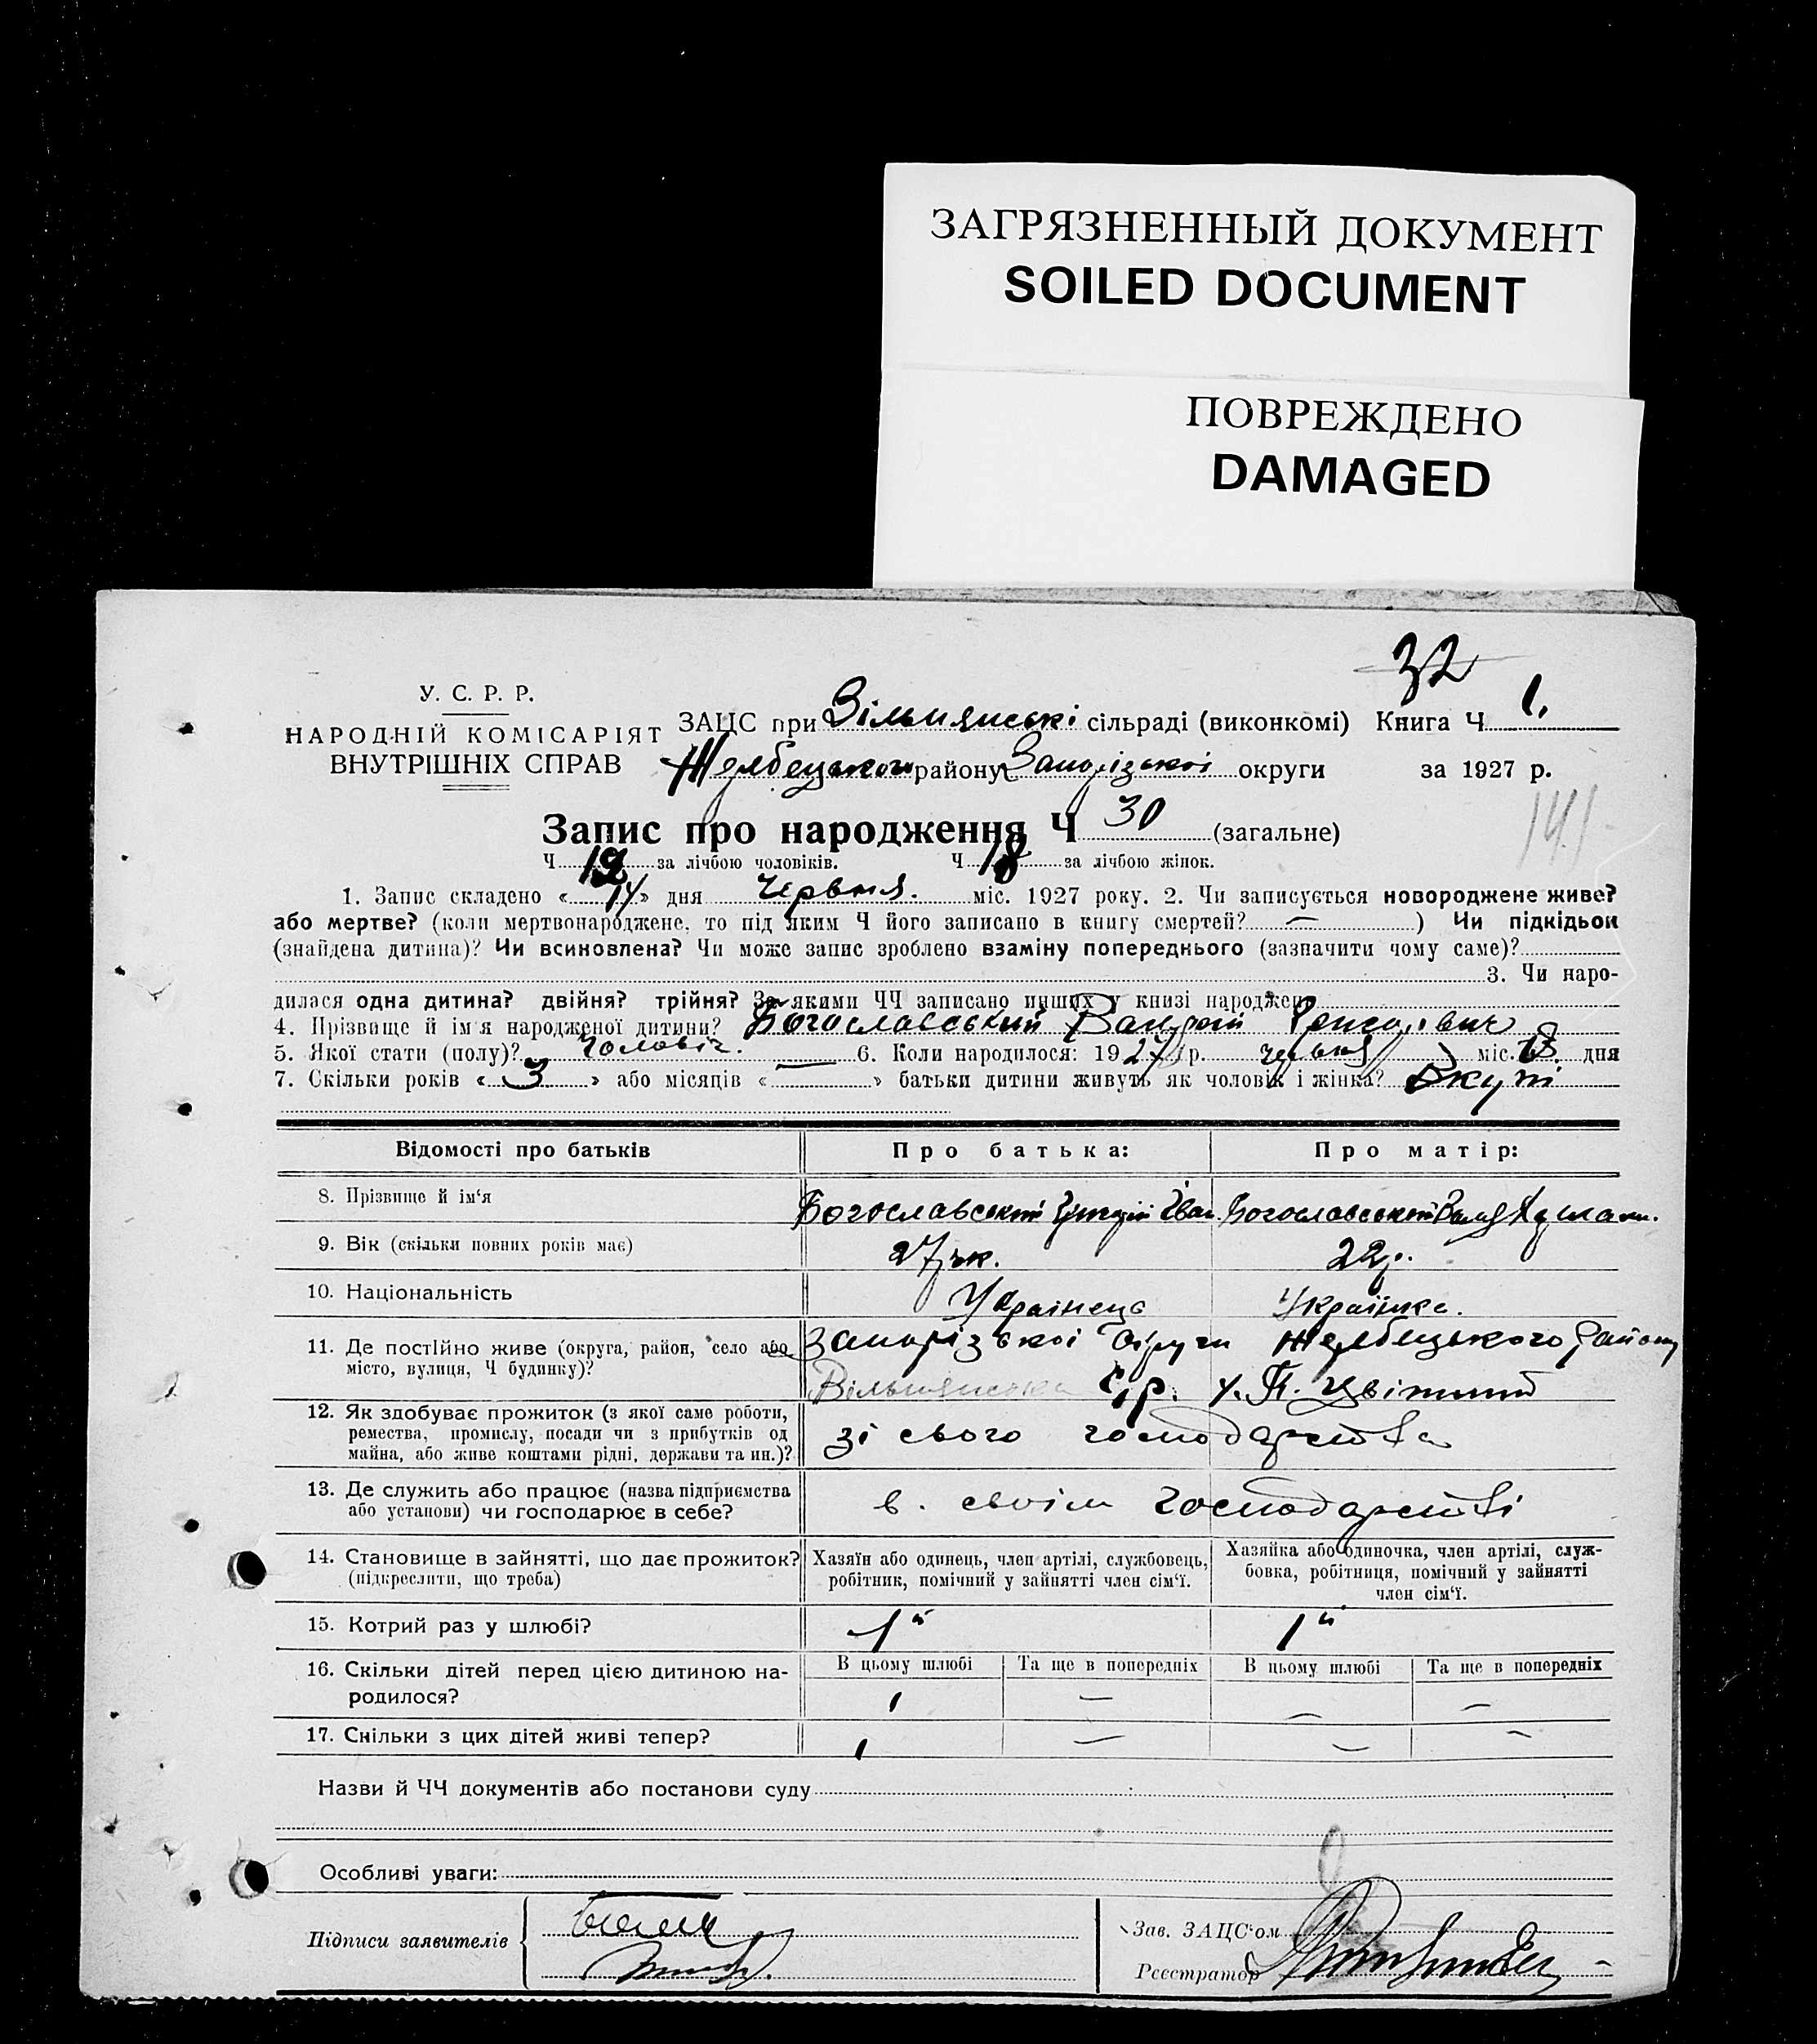 ЗАГРЯЗНЕННЫЙ ДОКУМЕНТ
SOILED DOCUMENT
ПОВРЕЖДЕНО
DAMAGED
32
У. С. Р. Р.
НАРОДНІЙ КОМІСАРІЯТ
ВНУТРІШНІХ СПРАВ
ЗАЦС при Вільнянські сільраді (виконкомі) Книга Ч 1.
Жеребецького району Запорізької округи за 1927 р.
141
Запис про народження Ч 30 (загальне)
Ч 12 за лічбою чоловіків. Ч 18 за лічбою жінок.
1. Запис складено «14» дня Червня. міс. 1927 року. 2. Чи записується новороджене живе?
або мертве? (коли мертвонароджене, то під яким Ч його записано в книгу смертей? — ) Чи підкідьок
(знайдена дитина)? Чи всиновлена? Чи може запис зроблено взаміну попереднього (зазначити чому саме)?
3. Чи наро-
дилася одна дитина? двійня? трійня? За якими ЧЧ записано инших у книзі народжень
4. Прізвище й ім'я народженої дитини? Богославський Григорівич
5. Якої стати (полу)? Чоловіч. — 6. Коли народилося: 1927 р. червня міс. дня
7. Скільки років «3» або місяців «—» батьки дитини живуть як чоловік і жінка? Вкупі
Відомості про батьків Про батька: Про матір:
8. Прізвище й ім'я Богославський Григорій Іван. Богославський
9. Вік (скільки повних років має) 27 рік. 22 р.
10. Національність Українець Українка.
11. Де постійно живе (округа, район, село або Запорізької округи Жеребецького району
місто, вулиця, Ч будинку)? Вільнянська С/р. х. Цвітний
12. Як здобуває прожиток (з якої саме роботи,
ремества, промислу, посади чи з прибутків од зі свого господарства
майна, або живе коштами рідні, держави та ин.)?
13. Де служить або працює (назва підприємства в. своім господарстві
або установи) чи господарює в себе?
14. Становище в зайнятті, що дає прожиток? Хазяїн або одинець, член артілі, службовець, Хазяйка або одиночка, член артілі, служ-
(підкреслити, що треба) робітник, помічний у зайнятті член сім'ї. бовка, робітниця, помічний у зайнятті
член сім'ї.
15. Котрий раз у шлюбі? 1й 1й
16. Скільки дітей перед цією дитиною на- В цьому шлюбі Та ще в попередніх В цьому шлюбі Та ще в попередніх
родилося? 1 — — —
17. Скільки з цих дітей живі тепер? 1 — — —
Назви й ЧЧ документів або постанови суду
Особливі уваги:
Підписи заявителів
Зав. ЗАЦС'ом
Реєстратор